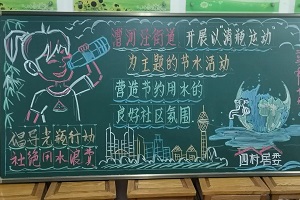 漕河泾街道 开展以
为主题的节水活动
营造节约用水的
良好社区氛围
倡导光瓶行动
杜绝用水浪费
四村居委